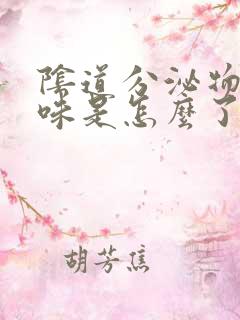 陰道分泌物
味是怎麼了
胡芳焦